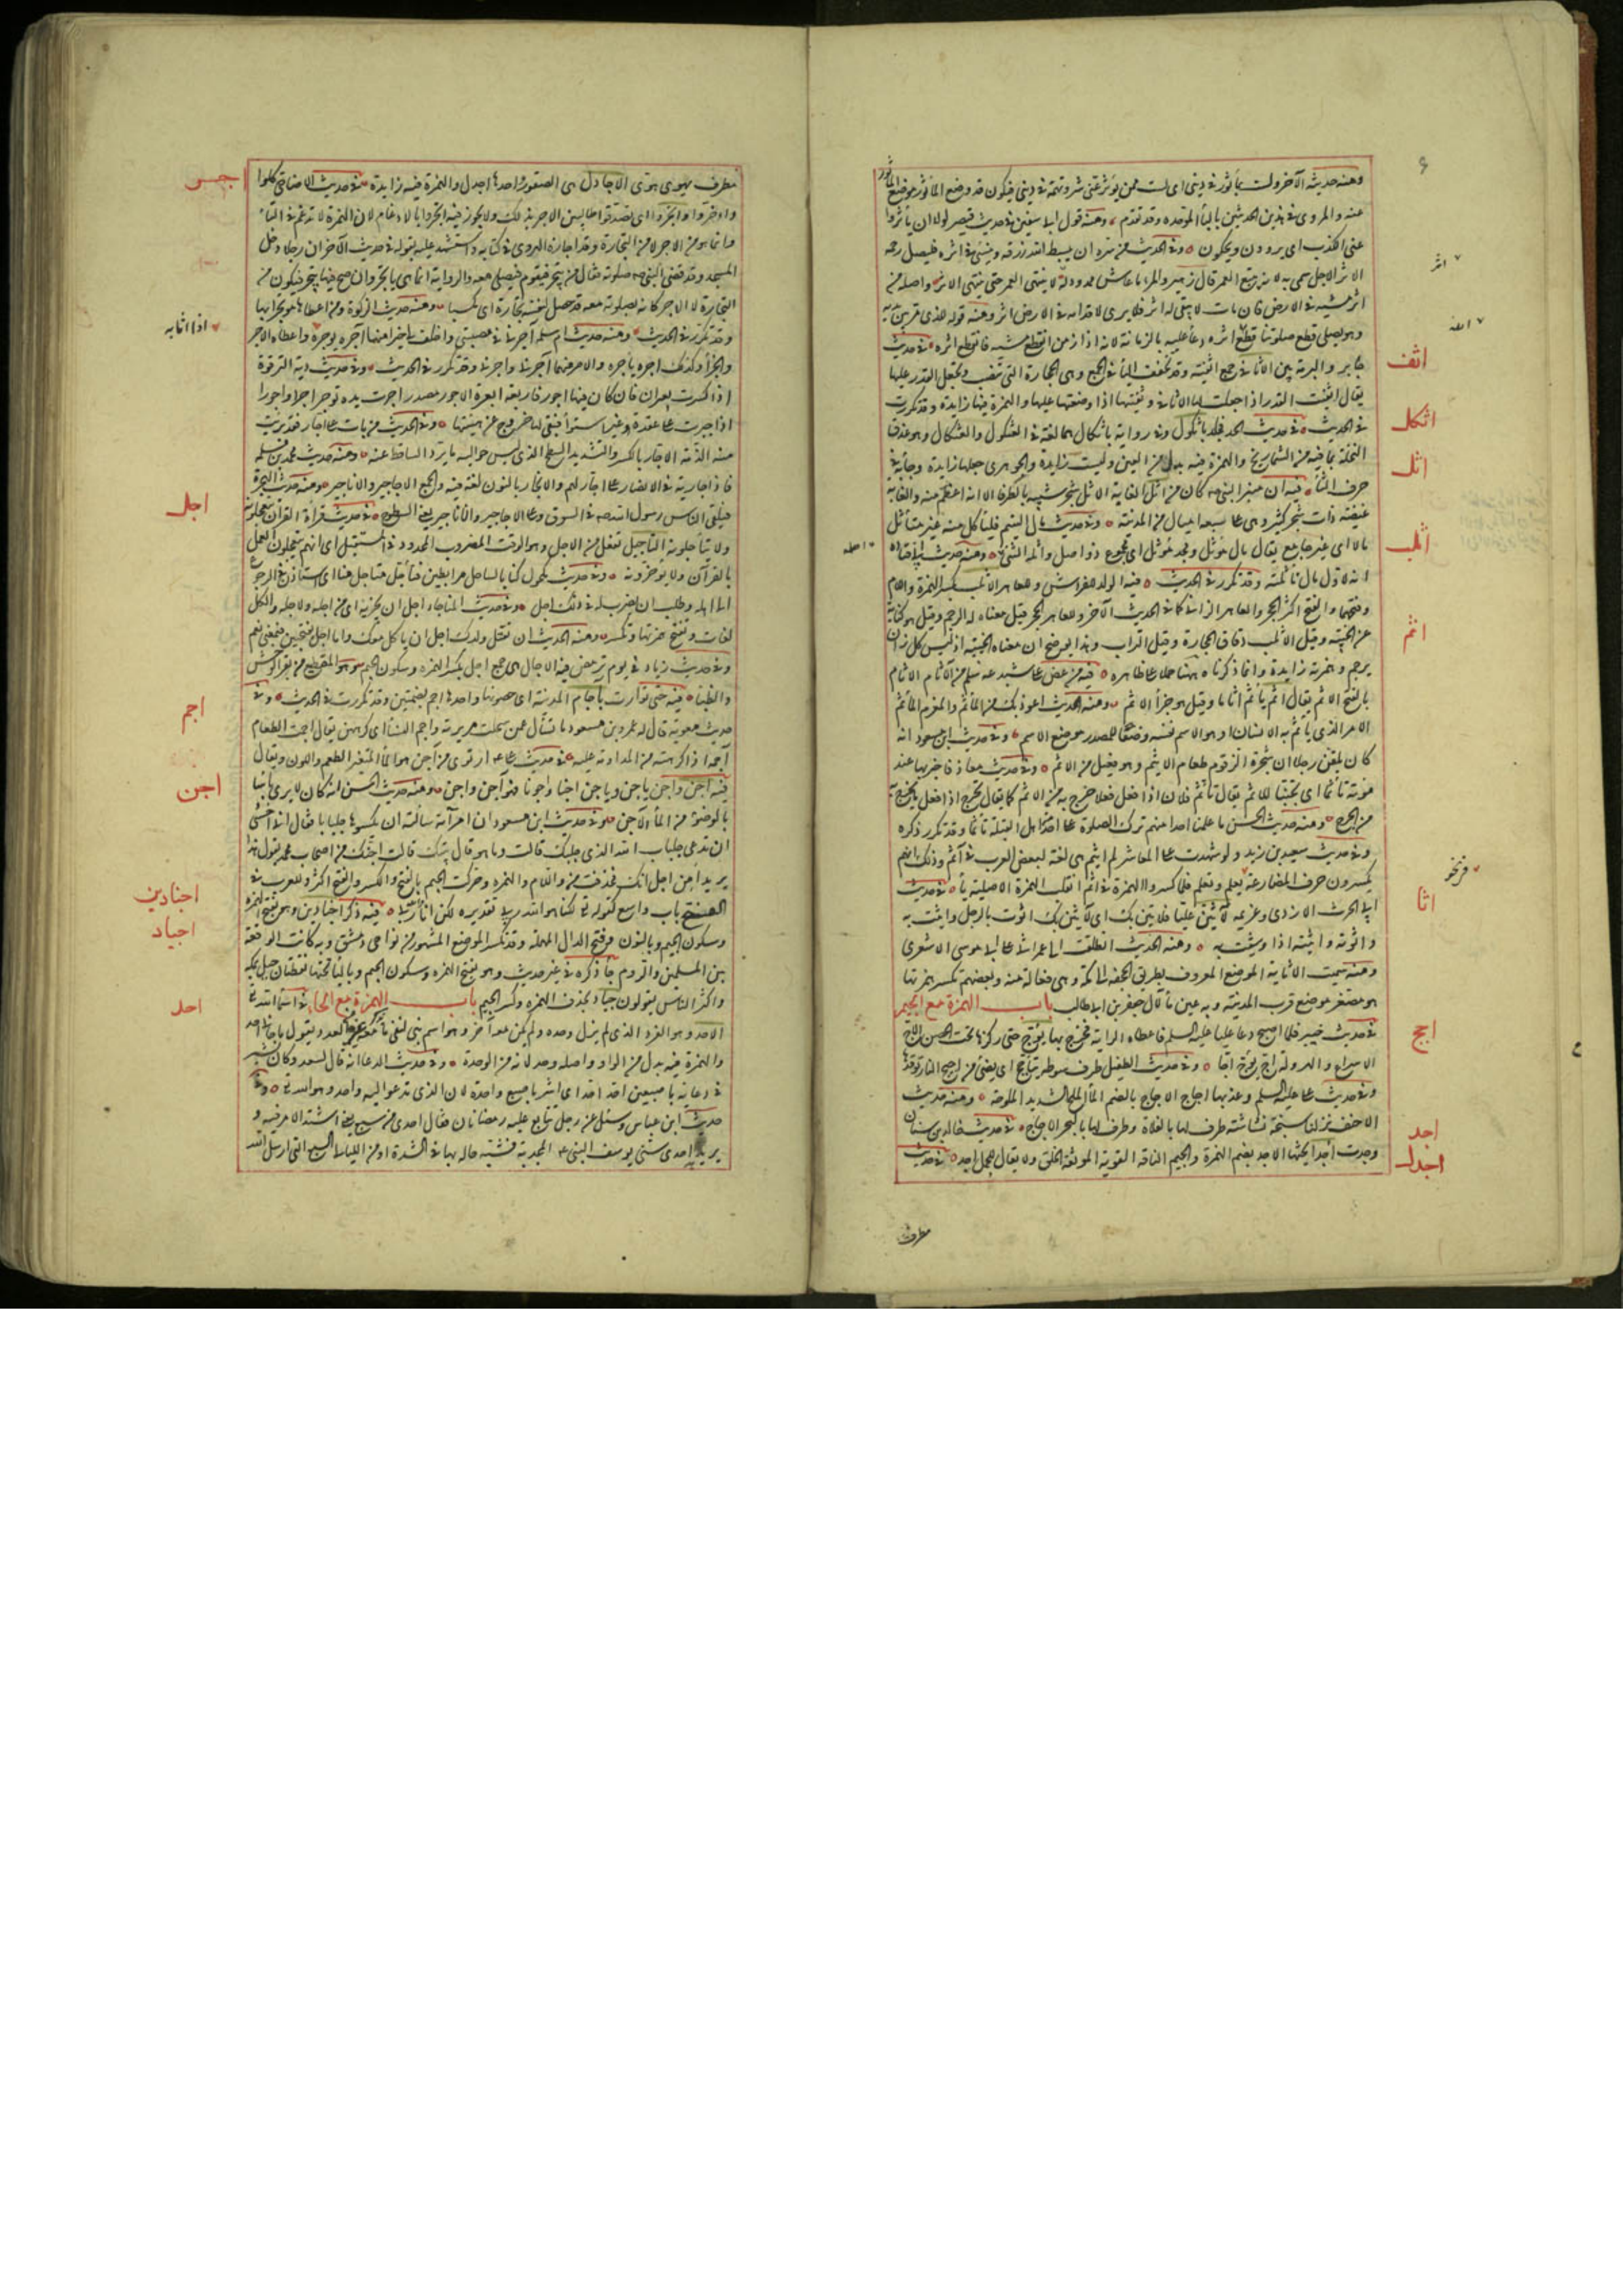 ومنه حديثه الآخر ولست بمأثور في ديني اي لست ممن يؤثر عني شر وتهمة في ديني فيكون قد وضع المأثور موضع المأثور
عنه والمروي في هذين الحديثين بالباء الموحدة وقد تقدم ومنه قول ابي سفين في حديث قيصر لولا ان يأثروا
عني الكذب اي يروون ويحكون وفي الحديث من سره ان يبسط الله رزقه وينسئ في اثره فليصل رحمه
الاثر الاجل سمي به لانه يتبع العمر قال زهير والمرء ما عاش ممدود له لا ينتهي العمر حتى ينتهي الاثر واصله من
اثر مشيه في الارض فان مات لا يبقى له اثر فلا يرى لاقدامه في الارض اثر ومنه قوله للذي مر بين يديه
وهو يصلي قطع صلوتنا قطع اثره دعا عليه بالزمانة لانه اذا زمن انقطع مشيه فانقطع اثره في حديث
جابر والبرمة بين الاثافي جمع اثفية وقد تخفف الياء في الجمع وهي الحجارة التي تنصب وتجعل القدر عليها
يقال اثفيت القدر اذا جعلت لها الاثافي وثفيتها اذا وضعتها عليها والهمزة فيها زايدة وقد تكررت
في الحديث في حديث الحد فجلد باثكول وفي رواية باثكال هما لغة في العثكول والعثكال وهو عذق
النخلة بما فيه من الشماريخ والهمزة فيه بدل من العين وليست زايدة والجوهري جعلها زايدة وجاء به في
حرف الثاء فيه ان منبر النبي كان من اثل الغابة الاثل شجر شبيه بالطرفاء الا انه اعظم منه والغابة
غيضة ذات شجر كثير وهي على تسعة اميال من المدينة وفي حديث مال اليتيم فليأكل منه غير متأثل
مالا اي غير جامع يقال مال مؤثل ومجد مؤثل اي مجموع ذو اصل واثلة الشيء ومنه حديث ابي قتادة
انه لاول مال تأثلته وقد تكرر في الحديث فيه الولد للفراش وللعاهر الاثلب بكسر الهمزة واللام
وفتحهما والفتح اكثر الحجر والعاهر الزاني كما في الحديث الآخر وللعاهر الحجر قيل معناه له الرجم وقيل هو كناية
عن الخيبة وقيل الاثلب دقاق الحجارة وقيل التراب وهذا يوضح ان معناه الخيبة اذ ليس كل زان
يرجم وهمزته زايدة وانما ذكرناه ههنا حملا على ظاهره فيه من عض على شبدعه سلم من الآثام الاثام
بالفتح الاثم يقال اثم يأثم اثاما وقيل هو جزاء الاثم ومنه الحديث اعوذ بك من المأثم والمغرم المأثم
الامر الذي يأثم به الانسان او هو الاثم نفسه وضعا للمصدر موضع الاسم وفي حديث ابن مسعود انه
كان يلقن رجلا ان شجرة الزقوم طعام الاثيم وهو فعيل من الاثم وفي حديث معاذ فاخبر بها عند
موته تأثما اي تجنبا للاثم يقال تأثم فلان اذا فعل فعلا خرج به من الاثم كما يقال تحرج اذا فعل ما يخرج به
من الحرج ومنه حديث الحسن ما علمنا احدا منهم ترك الصلوة على احد من اهل القبلة تأثما وقد تكرر ذكره
وفي حديث سعيد بن زيد ولو شهدت على العاشر لم ايثم هي لغة لبعض العرب في آثم وذلك انهم
يكسرون حرف المضارعة في نعلم وتعلم فلما كسروا الهمزة في اثم انقلبت الهمزة الاصلية ياء في حديث
ابي الحرث الازدي وغريمه لآتين عليا فلأثين بك اي لأشين بك اثوت بالرجل واثيت به
واثوته واثيته اذا وشيت به ومنه الحديث انطلقت الى عمر اثي على ابي موسى الاشعري
ومنه سميت الاثاية الموضع المعروف بطريق الجحفة الى مكة وهي فعالة منه وبعضهم يكسر همزتها
هو مصغر موضع قرب المدينة وبه عين ماء لآل جعفر بن ابي طالب باب الهمزة مع الجيم
في حديث خيبر فلما اصبح دعا عليا عليه السلم فاعطاه الراية فخرج بها يؤج حتى ركزها تحت الحصن الاج
الاسراع والهرولة اج يؤج اجا وفي حديث الطفيل طرف سوطه يتأجج اي يضيء من اجيج النار توقدها
وفي حديث علي عليه السلم وعذبها اجاج الاجاج بالضم الماء الملح الشديد الملوحة ومنه حديث
الاحنف نزلنا سبخة نشاشة طرف لها بالفلاة وطرف لها بالبحر الاجاج في حديث خالد بن سنان
وجدت اجدا يحثها الاجد بضم الهمزة والجيم الناقة القوية الموثقة الخلق ولا يقال للجمل اجد في حديث
مطرف
اثر
اثف
اثكل
اثل
اثلب
اثم
اثا
اجج
اجد
اجدل
مطرف يهوي هوي الاجادل هي الصقور واحدها اجدل والهمزة فيه زايدة في حديث الاضاحي كلوا
وادخروا وائتجروا اي تصدقوا طالبين الاجر بذلك ولا يجوز فيه اتجروا بالادغام لان الهمزة لا تدغم في التاء
وانما هو من الاجر لا من التجارة وقد اجازه الهروي في كتابه واستشهد عليه بقوله في حديث الآخر ان رجلا دخل
المسجد وقد قضى النبي صلوته فقال من يتجر فيقوم فيصلي معه والرواية انما هي يأتجر وان صح فيها يتجر فيكون من
التجارة لا الاجر كانه بصلوته معه قد حصل لنفسه تجارة اي مكسبا ومنه حديث الزكوة ومن اعطاها مؤتجرا بها
وقد تكرر في الحديث ومنه حديث ام سلمة آجرني في مصيبتي واخلف لي خيرا منها آجره يوجره واعطاه الاجر
والجزاء وكذلك اجره يأجره والامر منهما آجرني واجرني وقد تكرر في الحديث وفي حديث دية الترقوة
اذا كسرت بعيران فان كان فيها اجور فاربعة ابعرة الاجور مصدر اجرت يده توجر اجرا واجورا
اذا جبرت على عقدة وغير استواء فبقي لها خروج عن هيئتها وفي الحديث من بات على اجار فقد برئت
منه الذمة الاجار بالكسر والتشديد السطح الذي ليس حواليه ما يرد الساقط عنه ومنه حديث محمد بن مسلمة
فاذا جارية من الانصار على اجار لهم والانجار بالنون لغة فيه والجمع الاجاجير والاناجير ومنه حديث الهجرة
فتلقى الناس رسول الله في السوق وعلى الاجاجير والاناجير يعني السطوح في حديث قراءة القرآن يتعجلونه
ولا يتأجلونه التأجل تفعل من الاجل وهو الوقت المضروب المحدود في المستقبل اي انهم يتعجلون العمل
بالقرآن ولا يؤخرونه وفي حديث مكحول كنا بالساحل مرابطين فتأجل متأجل منا اي استأذن في الرجوع
الى اهله وطلب ان يضرب له في ذلك اجل وفي حديث المناجاة اجل ان يحزنه اي من اجله ولاجله والكل
لغات وتفتح همزتها وتكسر ومنه الحديث ان تقتل ولدك اجل ان يأكل معك واما اجل بفتحتين فبمعنى نعم
وفي حديث زياد في يوم ترمض فيه الاجال هي جمع اجل بكسر الهمزة وسكون الجيم وهو القطيع من بقر الوحش
والظباء فيه حتى توارت بآجام المدينة اي حصونها واحدها اجم بضمتين وقد تكررت في الحديث وفي
حديث معوية قال له عمرو بن مسعود ما تسأل عمن سحلت مريرته واجم النساء اي كرههن يقال اجمت الطعام
آجمه اذا كرهته من المداومة عليه في حديث علي ارتوى من آجن هو الماء المتغير الطعم واللون ويقال
فيه اجن وآجن ياجن وياجن اجنا واجونا فهو آجن واجن ومنه حديث الحسن انه كان لا يرى بأسا
بالوضوء من الماء الآجن وفي حديث ابن مسعود ان امرأته سألته ان يكسوها جلبابا فقال اني اخشى
ان تدعي جلباب الله الذي جلببك قالت وما هو قال بيتك قالت اجنك من اصحاب محمد تقول هذا
يريد امن اجل انك فحذفت من واللام والهمزة وحركت الجيم بالفتح والكسر والفتح اكثر وللعرب في
الحذف باب واسع كقوله تعالى لكنا هو الله ربي تقديره لكن انا فيه ذكر اجنادين وهو بفتح الهمزة
وسكون الجيم وبالنون وفتح الدال المهملة وقد تكسر الموضع المشهور من نواحي دمشق وبه كانت الوقعة
بين المسلمين والروم جاء ذكره في غير حديث وهو بفتح الهمزة وسكون الجيم وبالياء تحتها نقطتان جبل بمكة
واكثر الناس يقولون جياد بحذف الهمزة وكسر الجيم باب الهمزة مع الحاء في اسماء الله تعالى
الاحد وهو الفرد الذي لم يزل وحده ولم يكن معه آخر وهو اسم بني لنفي ما يذكر معه من العدد تقول ما جاءني احد
والهمزة فيه بدل من الواو واصله وحد لانه من الوحدة وفي حديث الدعاء انه قال لسعد وكان يشير
في دعائه باصبعين احد احد اي اشر باصبع واحدة لان الذي تدعو اليه واحد وهو الله تعالى وفي
حديث ابن عباس وسئل عن رجل تتابع عليه رمضانان فقال احدى من سبع يعني اشتد الامر فيه و
يريد به احدى سني يوسف النبي المجدبة فشبه حاله بها في الشدة او من الليالي السبع التي ارسل الله
اجر
اجل
اجم
اجن
اجنادين
اجياد
احد